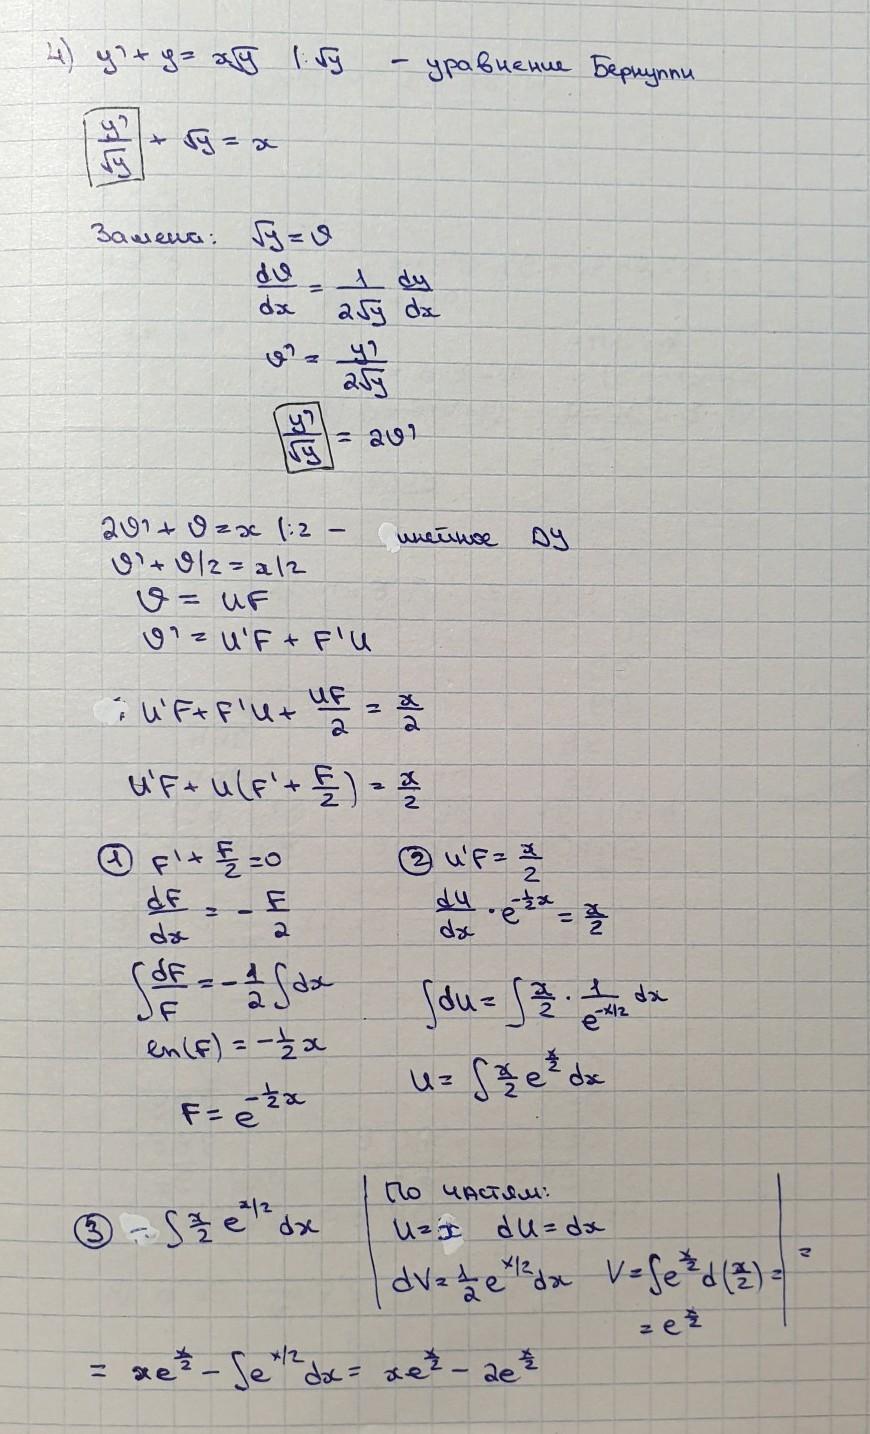 4) y' + y = x√y |:√y – уравнение Бернулли
y'/√y + √y = x
Замена: √y = ϑ
dϑ/dx = 1/(2√y) dy/dx
ϑ' = y'/(2√y)
y'/√y = 2ϑ'
2ϑ' + ϑ = x |:2 – инейное ДУ
ϑ' + ϑ/2 = x/2
ϑ = UF
ϑ' = U'F + F'U
U'F + F'U + UF/2 = x/2
U'F + U(F' + F/2) = x/2
① F' + F/2 = 0
dF/dx = - F/2
∫ dF/F = - 1/2 ∫ dx
ln(F) = - 1/2 x
F = e^(-1/2 x)
② U'F = x/2
dU/dx · e^(-1/2 x) = x/2
∫ dU = ∫ x/2 · 1/e^(-x/2) dx
U = ∫ x/2 e^(x/2) dx
③ ∫ x/2 e^(x/2) dx | По частям: | =
U = x dU = dx
dV = 1/2 e^(x/2) dx V = ∫ e^(x/2) d(x/2) =
= e^(x/2)
= x e^(x/2) - ∫ e^(x/2) dx = x e^(x/2) - 2e^(x/2)